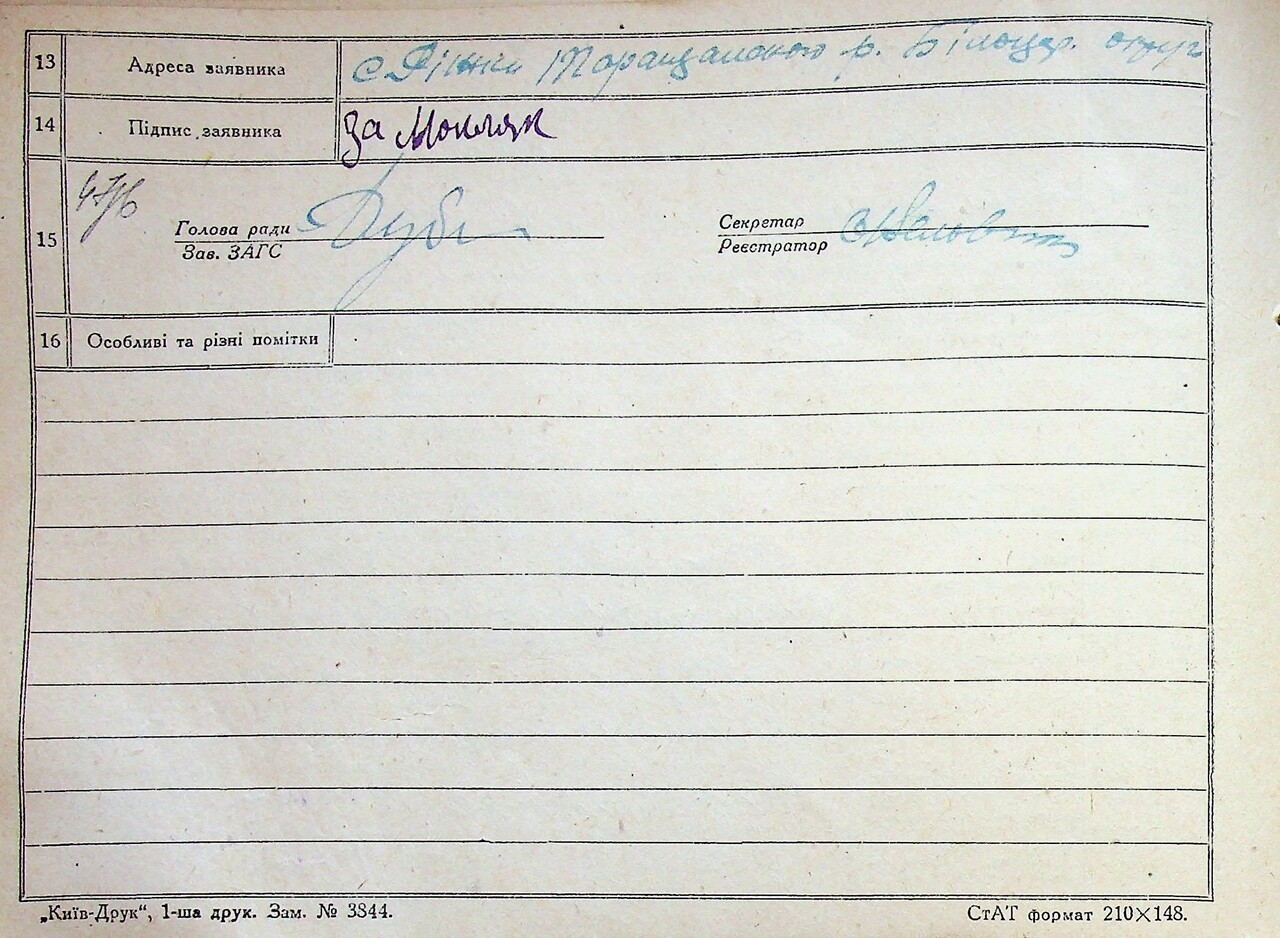 13 Адреса заявника с Ріжки Таращанського р. Білоцер. округ
14 Підпис заявника за Мокляк
15 Голова ради Секретар
Зав. ЗАГС Реєстратор
16 Особливі та різні помітки
„Київ-Друк“, 1-ша друк. Зам. № 3844. СтАТ формат 210×148.